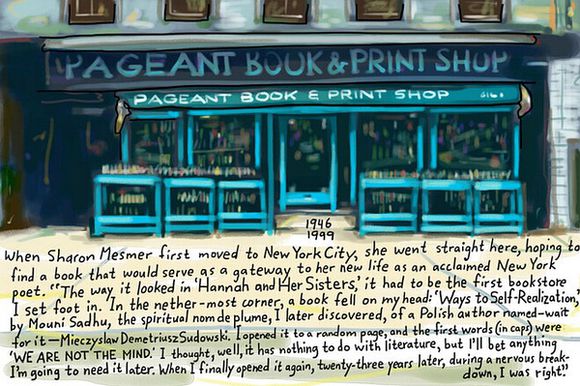 PAGEANT BOOK & PRINT SHOP
PAGEANT BOOK & PRINT SHOP
1946
1999
When Sharon Mesmer first moved to New York City, she went straight here, hoping to
find a book that would serve as a gateway to her new life as an acclaimed New York
poet. "The way it looked in 'Hannah and Her Sisters,' it had to be the first bookstore
I set foot in. In the nether-most corner, a book fell on my head: 'Ways to Self-Realization,'
by Mouni Sadhu, the spiritual nom de plume, I later discovered, of a Polish author named–wait
for it—Mieczyslaw Demetriusz Sudowski. I opened it to a random page, and the first words (in caps) were
'WE ARE NOT THE MIND.' I thought, well, it has nothing to do with literature, but I'll bet anything
I'm going to need it later. When I finally opened it again, twenty-three years later, during a nervous break-
down, I was right."